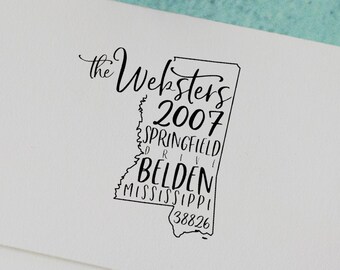 the Websters
2007
SPRINGFIELD
DRIVE
BELDEN
MISSISSIPPI
38826